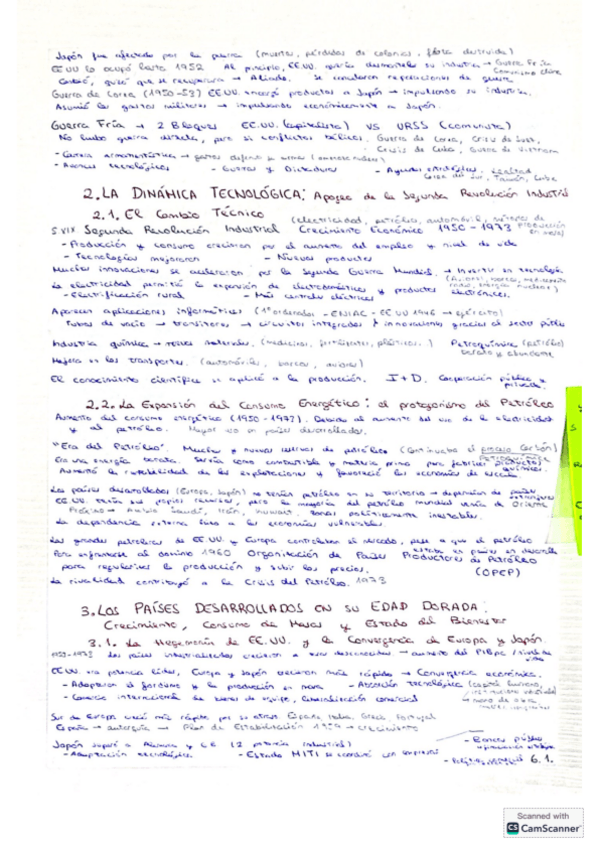 Japón fue afectado por la guerra (muertos, pérdidas de colonias, flota destruida)
EE.UU lo ocupó hasta 1952 Al principio, EE.UU. quería desmantelar su industria → Guerra Fría
Cambió, quiso que se recuperara → Aliado. Se cancelaron reparaciones de guerra Comunismo China
Guerra de Corea (1950-53) EE.UU encargó productos a Japón → impulsando su industria.
Asumió los gastos militares → impulsando económicamente a Japón.
Guerra Fría → 2 Bloques EE.UU. (capitalista) VS URSS (comunista)
No hubo guerra directa, pero sí conflictos bélicos. Guerra de Corea, Crisis de Suez,
Crisis de Cuba, Guerra de Vietnam
- Carrera armamentística → gastos defensa
- Avances tecnológicos - Guerras y Dictaduras - Ayudas
Corea del Sur, Taiwán, Cuba
2. LA DINÁMICA TECNOLÓGICA: Apogeo de la Segunda Revolución Industrial
2.1. El Cambio Técnico (electricidad, petróleo, automóvil, producción en masa)
S XIX Segunda Revolución Industrial Crecimiento Económico 1950-1973
- Producción y consumo crecieron por el aumento del empleo y nivel de vida
- Tecnologías mejoraron - Nuevos productos
Muchas innovaciones se aceleraron por la Segunda Guerra Mundial. → Invertir en tecnología
La electricidad permitió la expansión de electrodomésticos y productos electrónicos.
- Electrificación rural - Más centrales eléctricas
Aparecen aplicaciones informáticas (1º ordenador - ENIAC - EE.UU 1946 → ejército)
Tubos de vacío → transitores → circuitos integrados innovaciones gracias al sector público
Industria química → nuevos materiales. (medicinas, fertilizantes, plásticos..) Petroquímica (petróleo)
barato y abundante
Mejora en los transportes. (automóvil, barcos, aviones)
El conocimiento científico se aplicó a la producción. I+D. Cooperación pública y privada.
2.2. La Expansión del Consumo Energético: el protagonismo del Petróleo
Aumento del consumo energético (1950-1973). Debido al aumento del uso de la electricidad
y al petróleo. Mayor uso en países desarrollados.
"Era del Petróleo". Muchas y nuevas reservas de petróleo (Continuaba el carbón)
Era una energía barata. Servía como combustible y materia prima para fabricar productos químicos.
Aumentó la rentabilidad de las explotaciones y favoreció las economías de escala
Los países desarrollados (Europa, Japón) no tenían petróleo en su territorio → dependían de países extranjeros
EE.UU. tenía sus propias reservas, pero la mayoría del petróleo mundial venía de Oriente
Próximo → Arabia Saudí, Irán, Kuwait. Zonas políticamente inestables.
La dependencia externa hizo a las economías vulnerables.
Las grandes petroleras de EE.UU. y Europa controlaban el mercado, pese a que el petróleo
estaba en países en desarrollo
Para enfrentarse al dominio 1960 Organización de Países Productores de Petróleo
para regularizar la producción y subir los precios. (OPEP)
La rivalidad contribuyó a la Crisis del Petróleo. 1973
3. LOS PAÍSES DESARROLLADOS EN SU EDAD DORADA:
Crecimiento, Consumo de Masas y Estado del Bienestar
3.1. La Hegemonía de EE.UU. y la Convergencia de Europa y Japón.
1950-1973 Los países industrializados crecieron → aumento del PIBpc / nivel de vida
EE.UU era potencia líder, Europa y Japón crecieron más rápido → Convergencia económica.
- Adoptaron el fordismo y la producción en masa - Absorción tecnológica
- Comercio internacional de bienes de equipo, liberalización comercial → mano de obra
Sur de Europa creció más rápido por su atraso España, Italia, Grecia, Portugal
España → autarquía → Plan de Estabilización 1959 → crecimiento
Japón superó a Alemania y GB (2ª potencia industrial) - Bancos públicos
- Adaptación tecnológica - Estado MITI se coordinó con empresas 6.1.
Scanned with
CS CamScanner